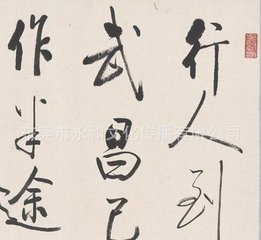 行人到
武昌已
作半途
东莞市永和文化传播有限公司